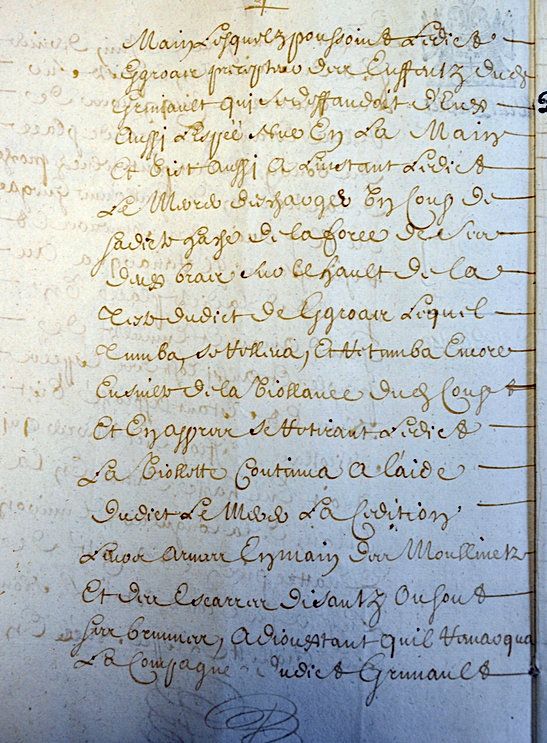 Main Lesquelz poussoint Ledict
Esgroair precepteur des Enffentz dud
Grimault qui se deffandoit d'Eux
Aussi L'espée Nue En La Main
Et dist Aussi A L'instant Ledict
Le Mere descharger Un Coup de
sadite hache de la force de ses
deux bras sur le hault de la
Teste dudict de Esgroair Lequel
Tumba, se Relleva, Et Retumba Encore
Ensuite de la Viollance dud Coup
Et En appres se Retirant Ledict
La Viollette Continua A l'aide
Dudict Le Mere La Cedition
Leurs armes En main des Moullinetz
Et des Escarres disantz Ou sont
ses braves, Adjoustant quil Vanarqua
La Compagne dudict Grimault